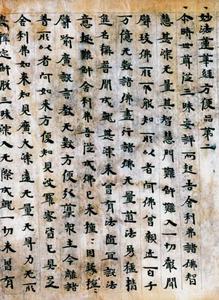 妙法蓮華經方便品第二
尒時世尊從三昧安詳而起告舍利弗諸佛智
慧甚深无量其智慧門難解難入一切聲聞
辟支佛所不能知所以者何佛曾親近百千
万億无數諸佛盡行諸佛无量道法勇猛精
進名稱普聞成就甚深未曾有法隨宜所說
意趣難解舍利弗吾從成佛已來種〻因緣種〻
譬喻廣演言教无數方便引導衆生令離諸
著所以者何如來方便知見波羅蜜皆已具足
舍利弗如來知見廣大深遠无量无㝵力无所
畏禪定解脫三昧深入无際成就一切未曾有